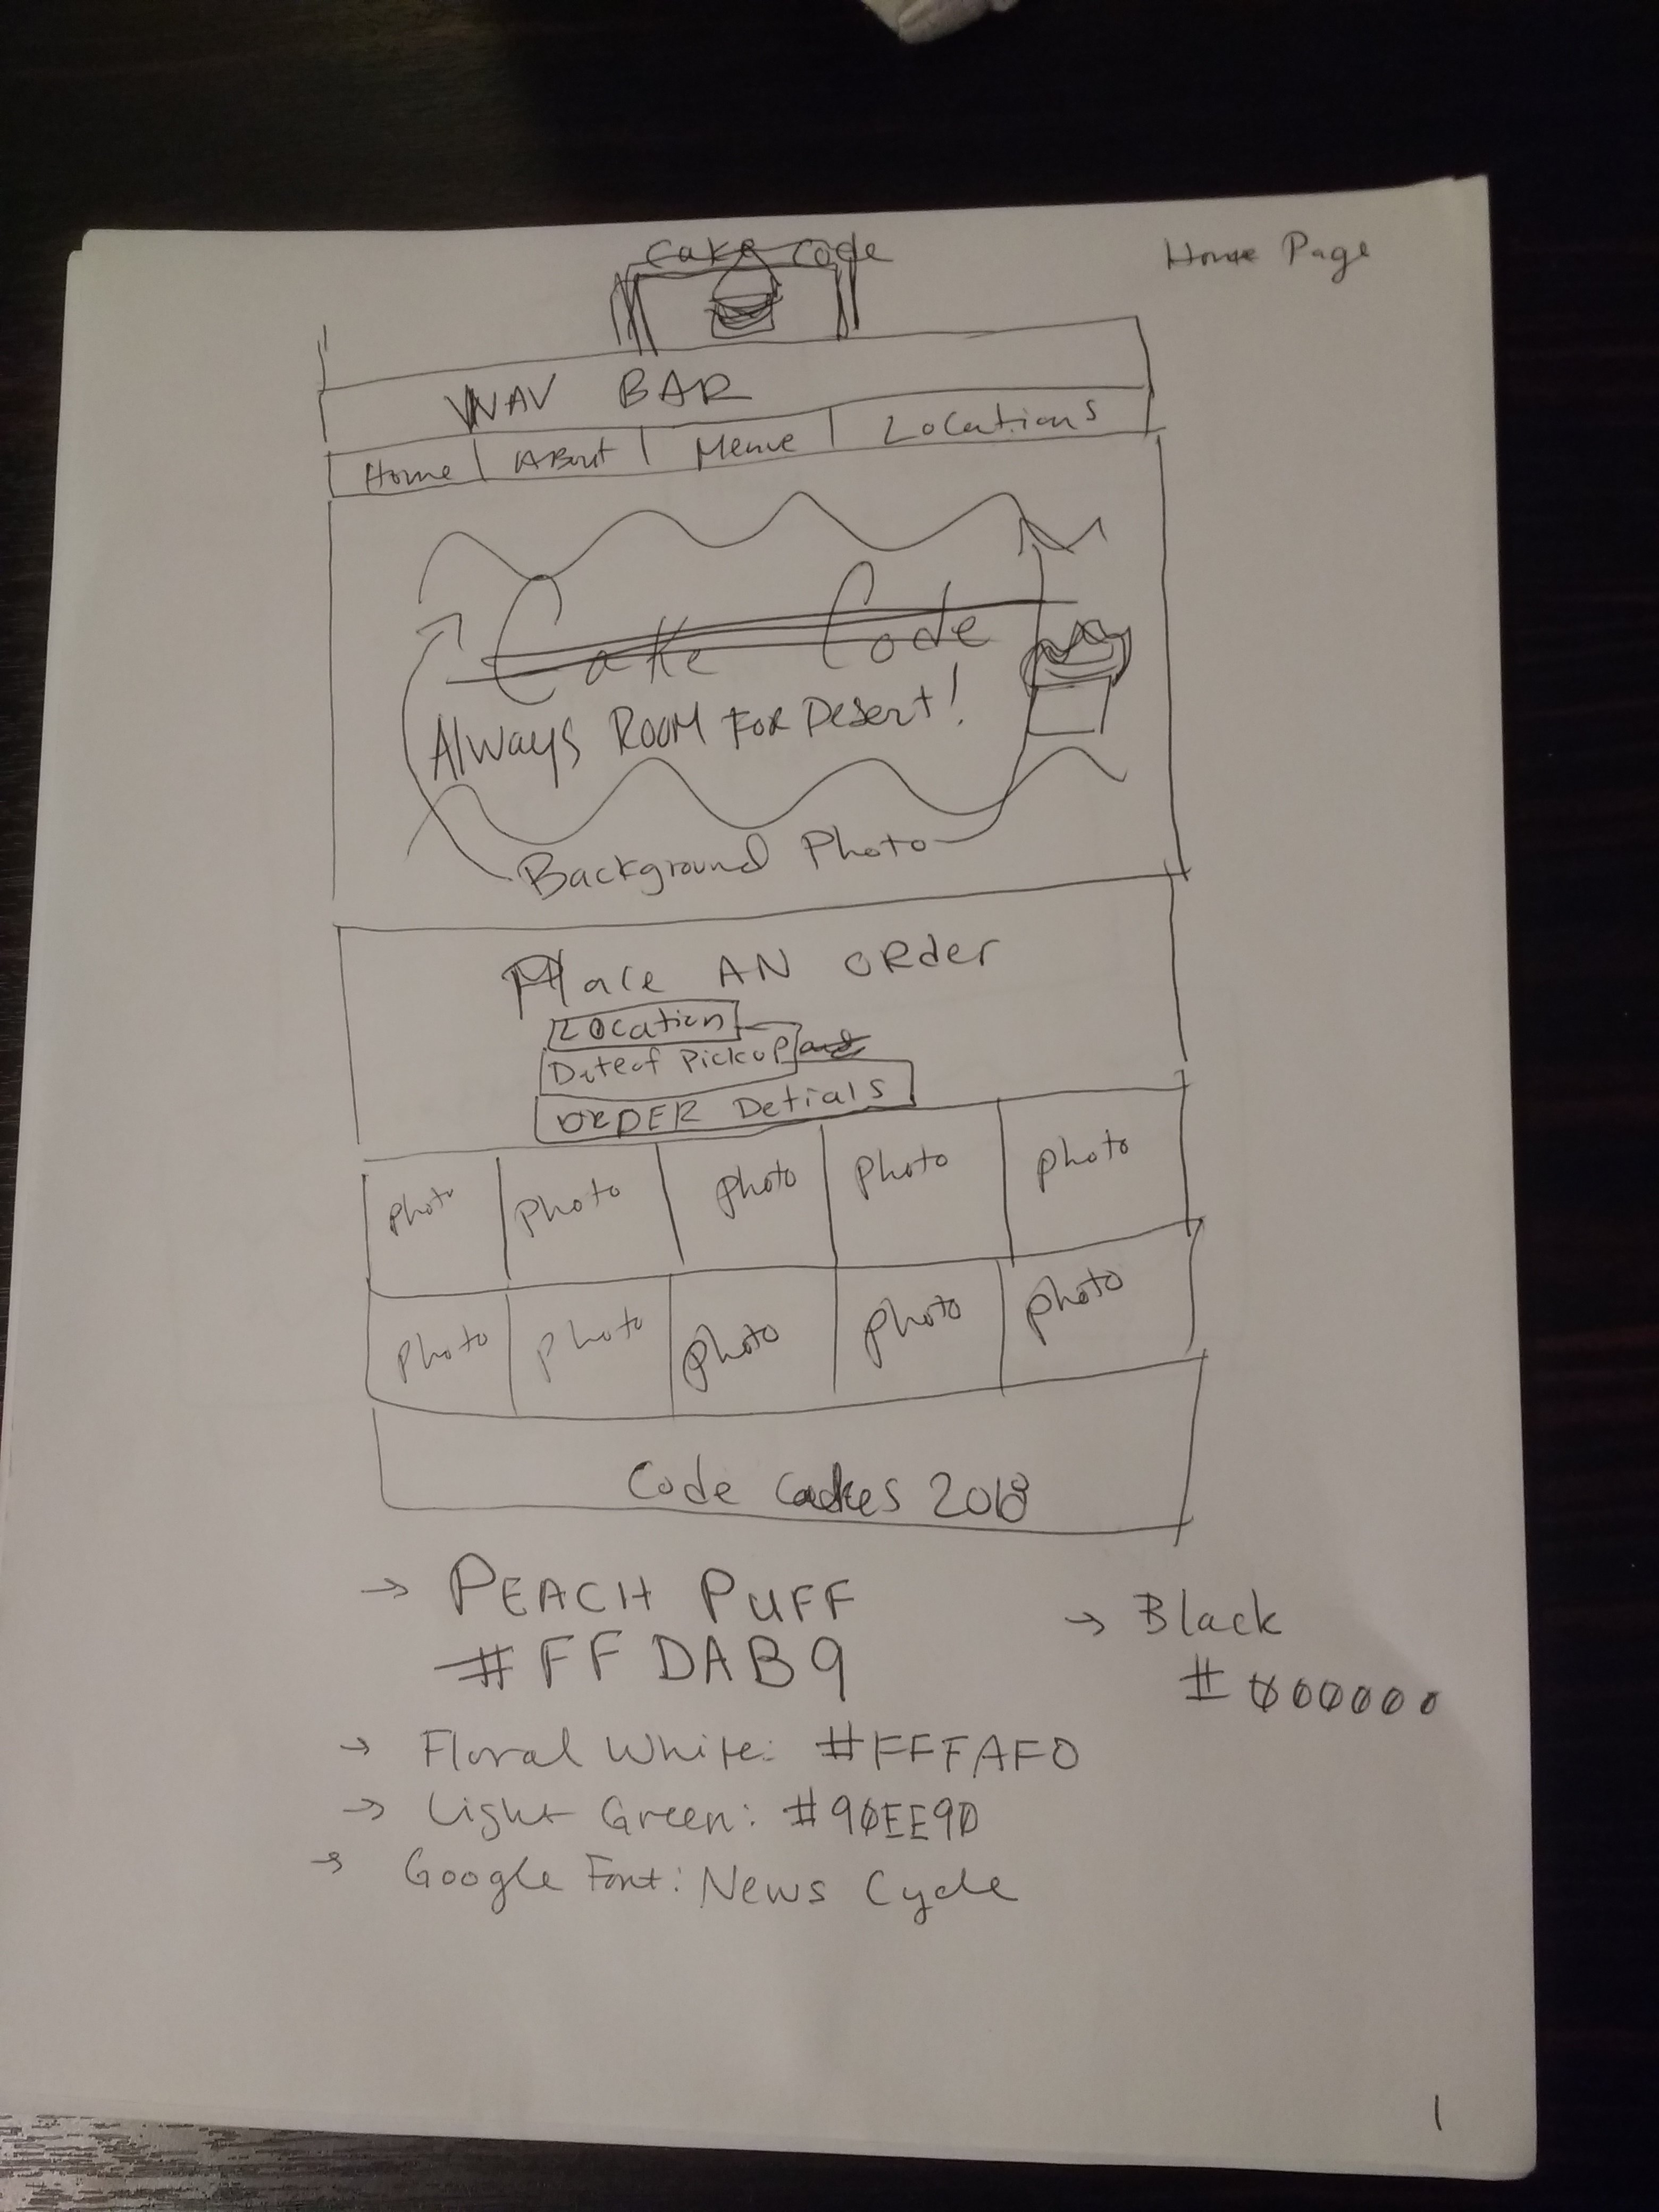 Home Page
Cake Code
NAV BAR
Home About Menue Locations
Cake Code
Always Room For Desert!
Background Photo
Place AN ORder
Location
Date of Pickup
ORDER Detials
photo photo photo photo photo
photo photo photo photo photo
Code Cakes 2018
→ PEACH PUFF
#FFDAB9
→ Black
#000000
→ Floral White: #FFFAF0
→ Light Green: #90EE90
→ Google Font: News Cycle
1